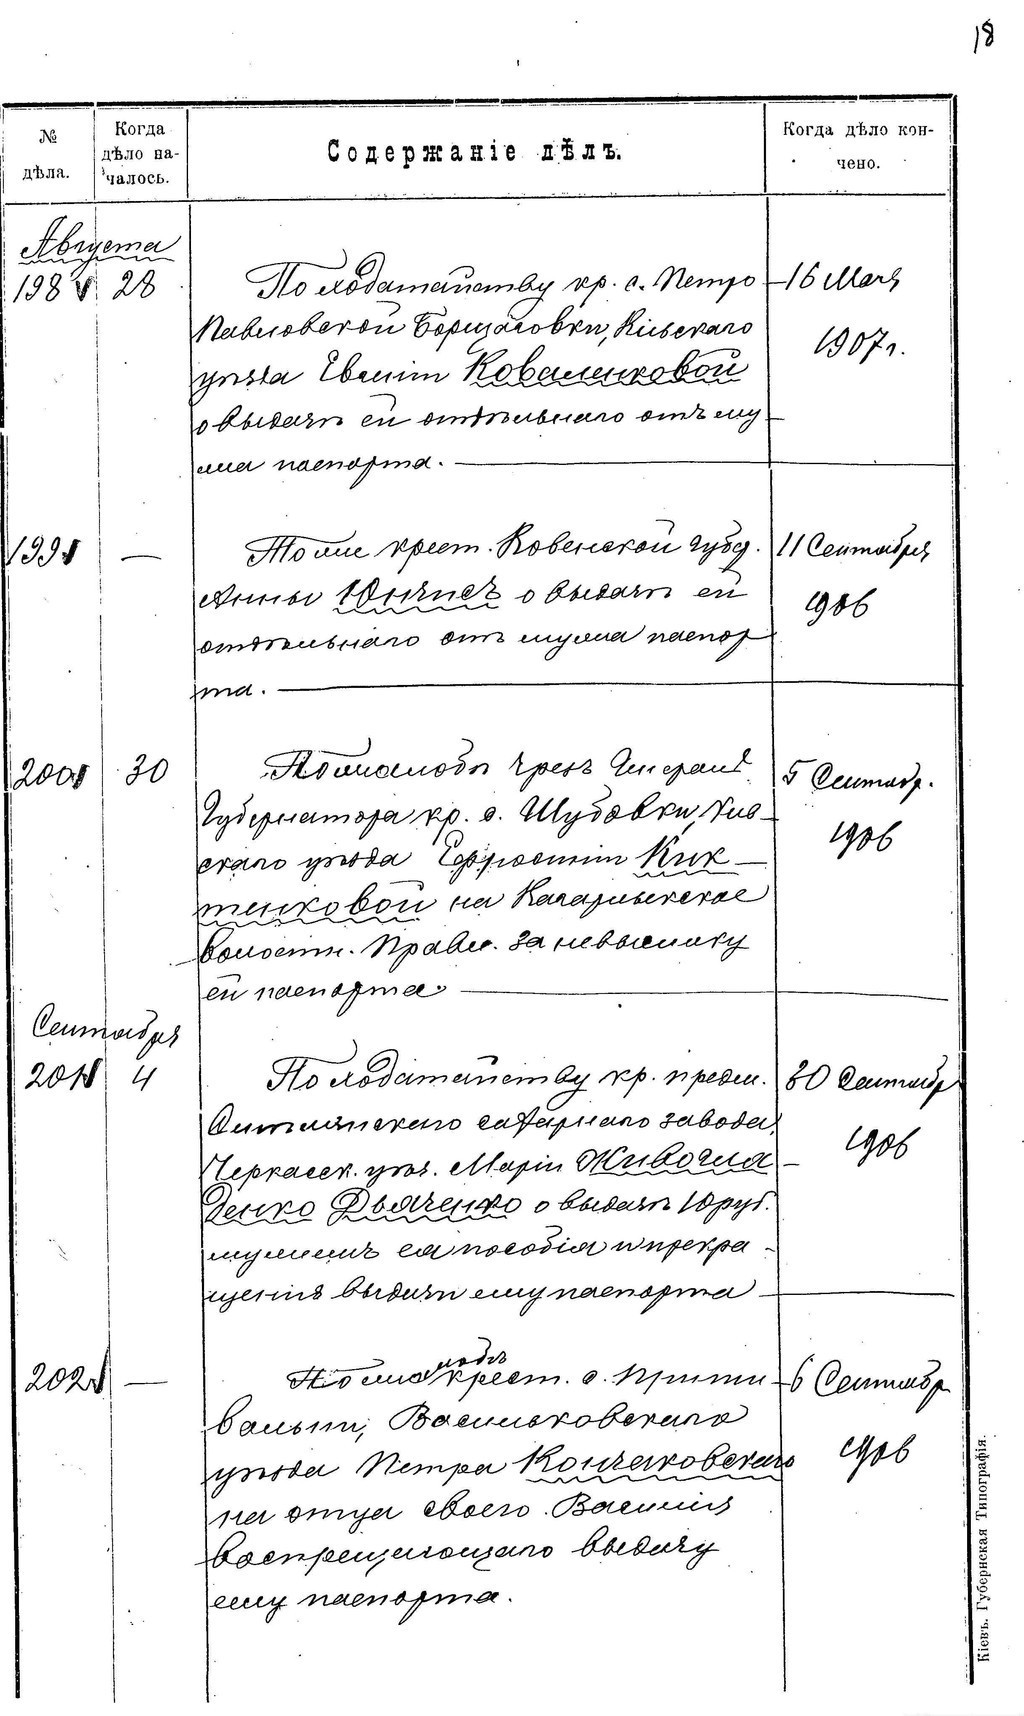 18
№ дѣла.
Когда дѣло на-чалось.
Содержаніе дѣлъ.
Когда дѣло кон-чено.
Августа
198 28
По ходатайству кр. с. Петро
Павловской Борщаговки, Кіевскаго
уѣзда Евгеніи Коваленковой
о выдачѣ ей отдѣльнаго отъ му
жа паспорта.
16 Мая
1907 г.
199 —
То же крест. Ковенской губ.
Анны о выдачѣ ей
отдѣльнаго отъ мужа паспор
та.
11 Сентября
1906
200 30
По жалобѣ чрезъ Генералъ
Губернатора кр. с. Шубовки, Кіев
скаго уѣзда Ефросиніи Кик
тенковой на Кагарлыкское
волостн. Правл. за невысылку
ей паспорта.
5 Сентябр.
1906
Сентября
201 4
По ходатайству кр. предм.
сахарнаго завода,
Черкасск. уѣз. Маріи Живогля
денко Дьяченко о выдачѣ 10 руб.
мужемъ ея пособія и прекра
щенія выдачи ему паспорта
30 Сентябр
1906
202 —
По жалобѣ крест. с.
Васильковскаго
уѣзда Петра Кончаковскаго
на отца своего Василія
воспрещающаго выдачу
ему паспорта.
6 Сентябр
1906
Кіевъ. Губернская Типографія.